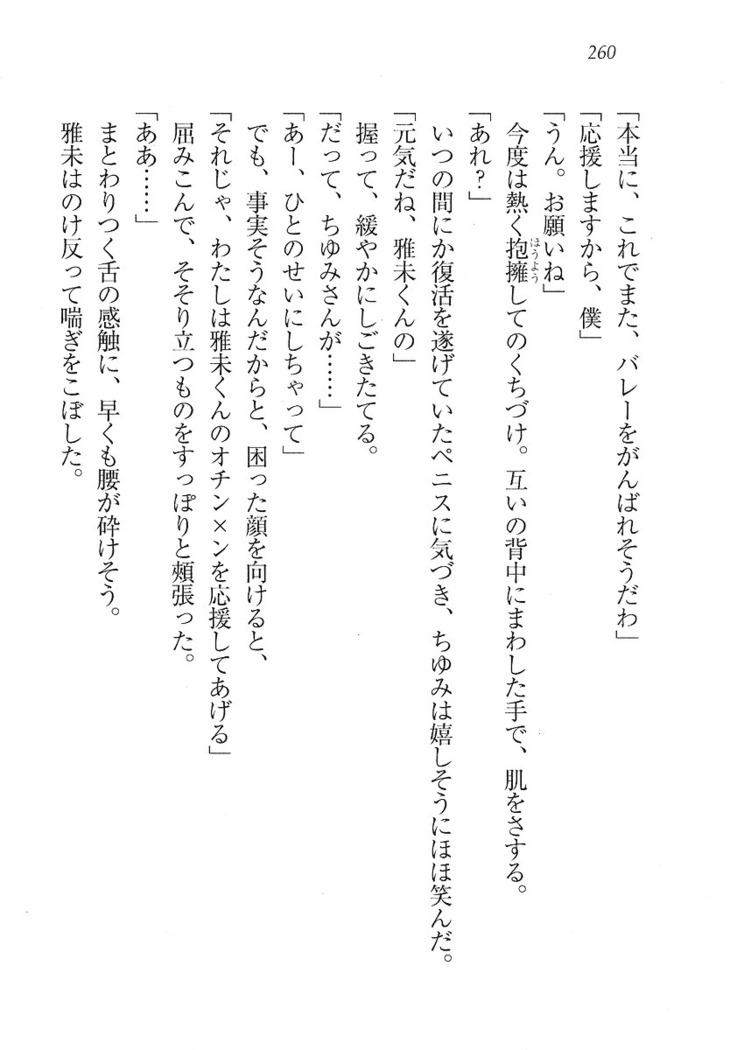 260
「本当に、これでまた、バレーをがんばれそうだわ」
「応援しますから、僕」
「うん。お願いね」
今度は熱く抱擁してのくちづけ。互いの背中にまわした手で、肌をさする。
ほうよう
「あれ？」
いつの間にか復活を遂げていたペニスに気づき、ちゆみは嬉しそうにほほ笑んだ。
「元気だね、雅未くんの」
握って、緩やかにしごきたてる。
「だって、ちゆみさんが……」
「あー、ひとのせいにしちゃって」
でも、事実そうなんだからと、困った顔を向けると、
「それじゃ、わたしは雅未くんのオチン×ンを応援してあげる」
屈みこんで、そそり立つものをすっぽりと頬張った。
「ああ……」
まとわりつく舌の感触に、早くも腰が砕けそう。
雅未はのけ反って喘ぎをこぼした。